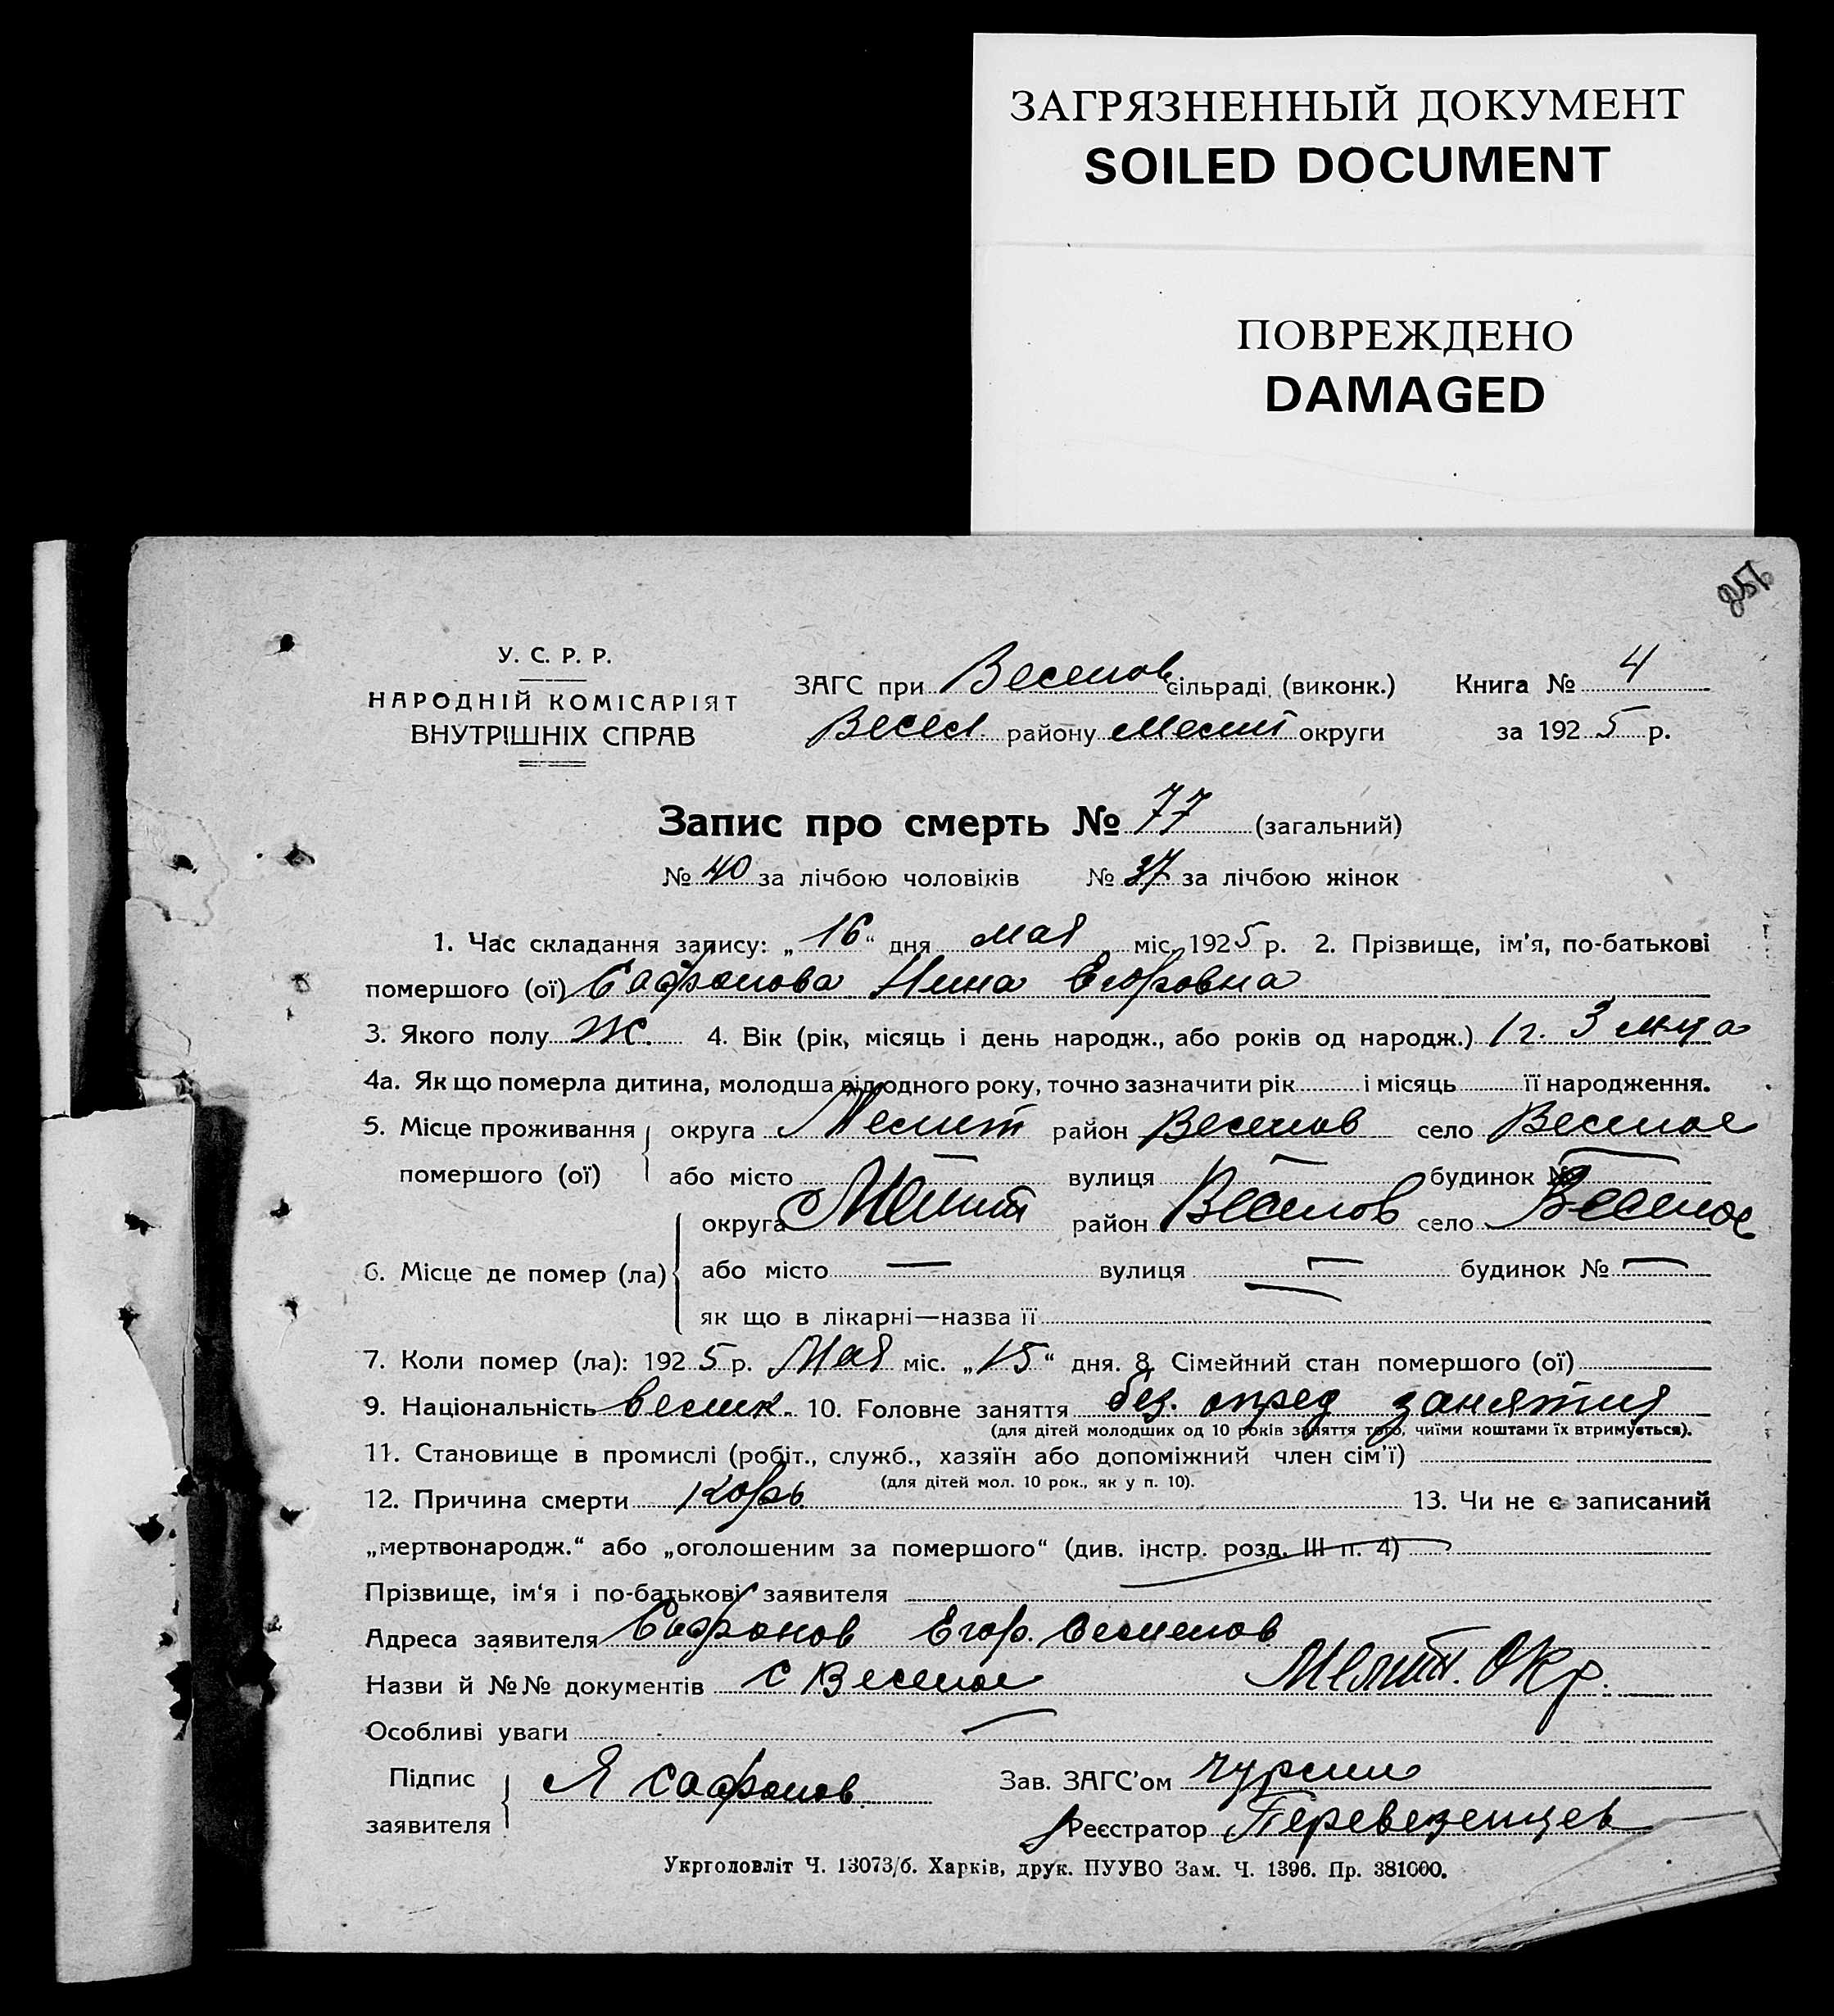 ЗАГРЯЗНЕННЫЙ ДОКУМЕНТ
SOILED DOCUMENT
ПОВРЕЖДЕНО
DAMAGED
У. С. Р. Р.
НАРОДНІЙ КОМІСАРІЯТ
ВНУТРІШНІХ СПРАВ
ЗАГС при Веселов сільраді (виконк.) Книга № 4
Весел. району Мелит округи за 1925 р.
Запис про смерть № 77 (загальний)
№ 40 за лічбою чоловіків № 37 за лічбою жінок
1. Час складання запису: „16“ дня мая міс. 1925 р. 2. Прізвище, ім’я, по-батькові
помершого (ої) Сафронова Нина Егоровна
3. Якого полу ж. 4. Вік (рік, місяць і день народж., або років од народж.) 1 г. 3 м-ца
4а. Як що померла дитина, молодша від одного року, точно зазначити рік і місяць її народження.
5. Місце проживання округа Мелит район Веселов село Веселое
помершого (ої) або місто — вулиця — будинок № —
округа Мелит район Веселов село Веселое
6. Місце де помер (ла) або місто — вулиця — будинок № —
як що в лікарні—назва її
7. Коли помер (ла): 1925 р. Мая міс. „15“ дня. 8. Сімейний стан помершого (ої)
9. Національність велик. 10. Головне заняття без. опред занятия
(для дітей молодших од 10 років заняття того, чиїми коштами їх втримується).
11. Становище в промислі (робіт., служб., хазяїн або допоміжний член сім’ї)
(для дітей мол. 10 рок., як у п. 10).
12. Причина смерти корь 13. Чи не є записаний
„мертвонародж.“ або „оголошеним за помершого“ (див. інстр. розд. III п. 4)
Прізвище, ім‘я і по-батькові заявителя
Адреса заявителя Сафронов Егор. Семенов
Назви й №№ документів с Веселое Мелит. Окр.
Особливі уваги —
Підпис
заявителя Я Сафронов
Зав. ЗАГС’ом Чурсин
Реєстратор Перевезенцев
Укрголовліт Ч. 13073/б. Харків, друк. ПУУВО Зам. Ч. 1396. Пр. 381000.